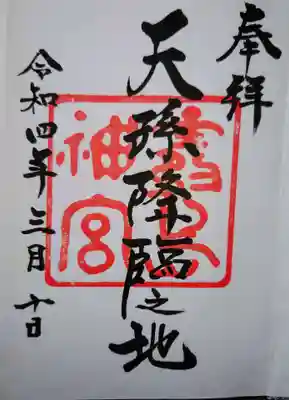 奉拝
天孫降臨之地
令和四年三月十日
霧島
神宮